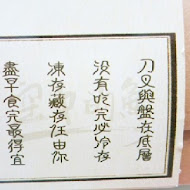 刀叉與盤在底層
沒有吃完必冷存
凍存藏存任由你
盡早食完最得宜